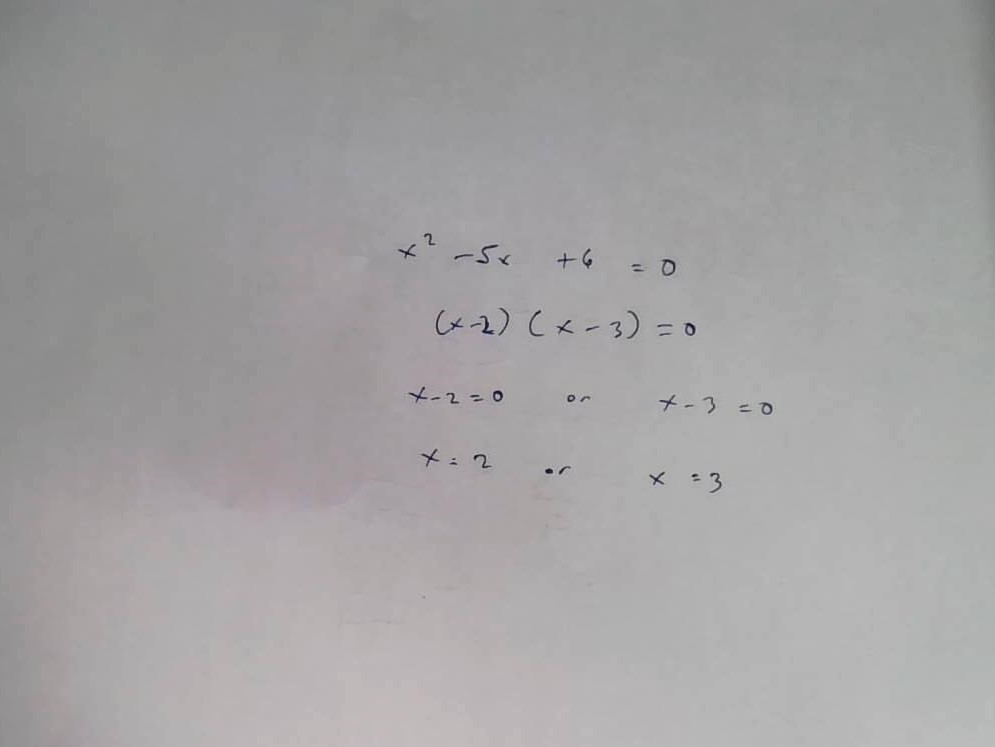 x² -5x +6 = 0
(x-2) (x-3) = 0
x-2=0 or x-3 =0
x=2 or x =3